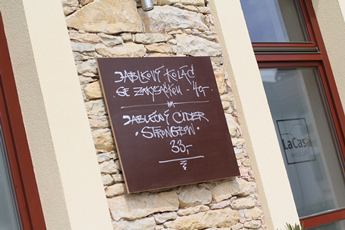 JABLKOVÝ KOLÁČ
SE ZAKYSANOU · 49,-
JABLEČNÝ CIDER
· STRONGBOW ·
33,-
LaCasa